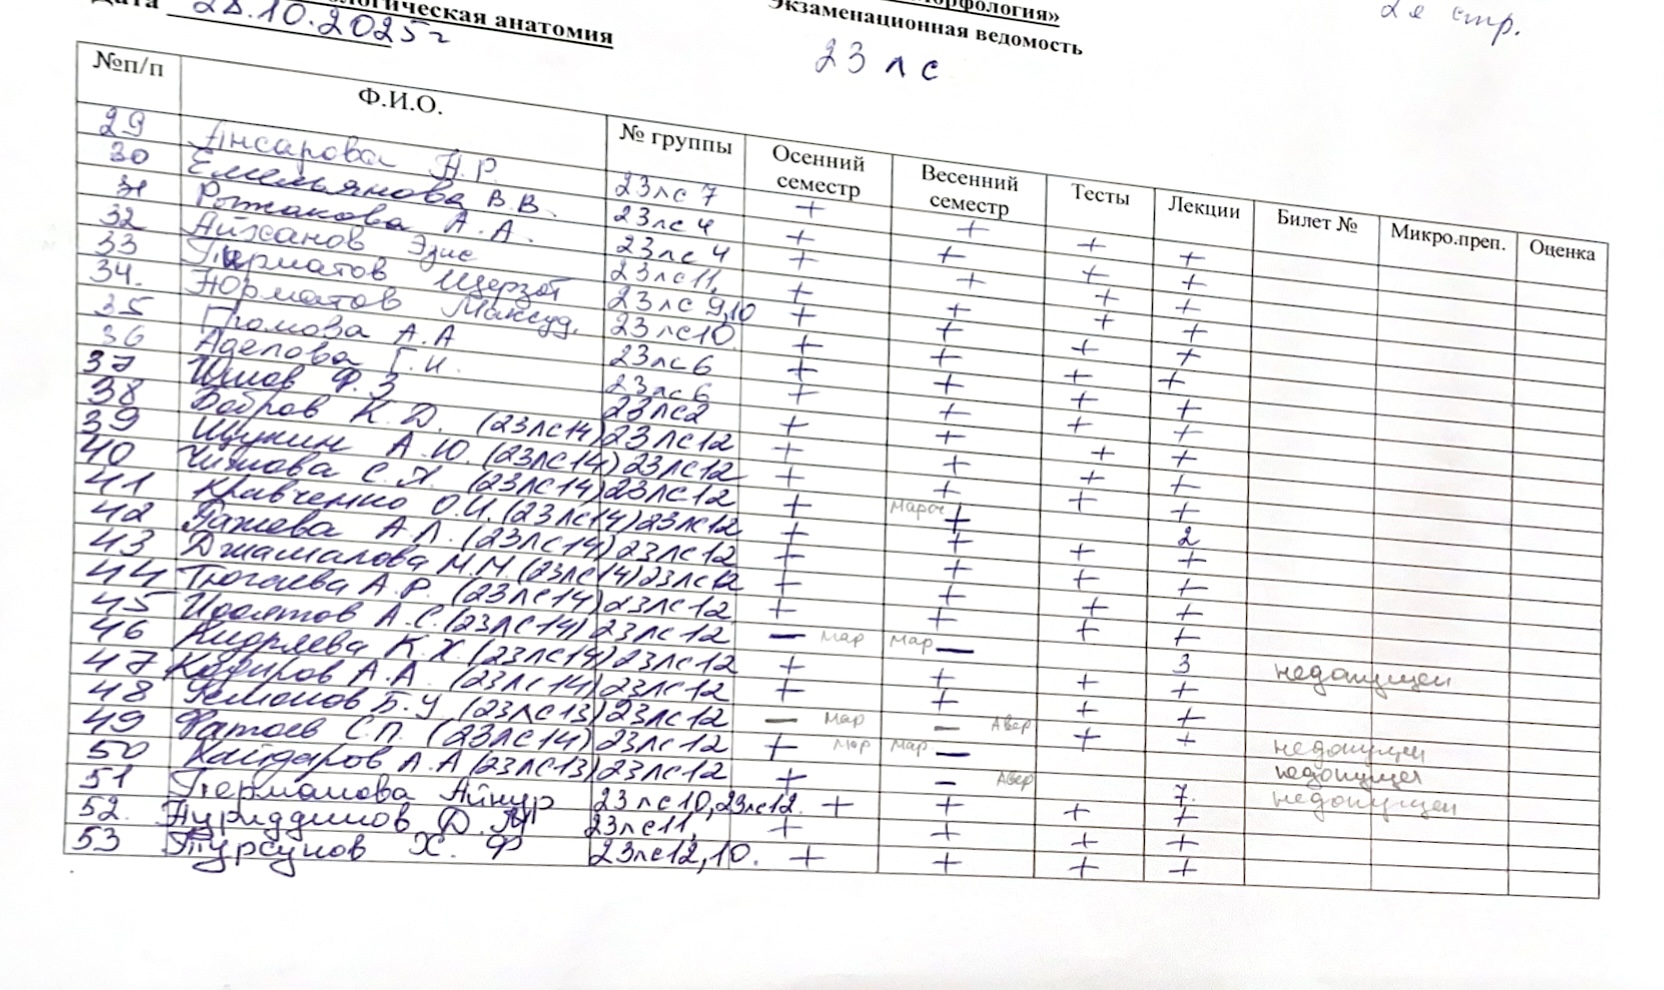 Дата 28.10.2025г
логическая анатомия
орфология»
Экзаменационная ведомость
23 лс
2я стр.
№п/п Ф.И.О. № группы Осенний семестр Весенний семестр Тесты Лекции Билет № Микро.преп. Оценка
29 Ансарова А.Р. 23лс7 + + + +
30 Емельянова В.В. 23лс4 + + + +
31 Рожакова А.А. 23лс4 + + + +
32 Айжанов Эдис 23лс11, + + + +
33 Шерзот 23лс9,10 + + + +
34. Норматов Максуд. 23лс10 + + + +
35 Громова А.А 23лс6 + + + +
36 Аделова Г.И. 23лс6 + + + +
37 Ф.З 23лс2 + + + +
38 Бобров К.Д. (23лс14) 23лс12 + + + +
39 Щукин А.Ю. (23лс14) 23лс12 + + + +
40 Чижова С.Я. (23лс14) 23лс12 + + + +
41 Кравченко О.И. (23лс14) 23лс12 + + 2
42 А.Л. (23лс14) 23лс12 + + + +
43 Джамалова М.М. (23лс14) 23лс12 + + + +
44 Тюгаева А.Р. (23лс14) 23лс12 + + + +
45 А.С. (23лс14) 23лс12 + + + +
46 К.Х. (23лс14) 23лс12 — мар мар — 3 недопущен
47 Кодиров А.А. (23лс14) 23лс12 + + + +
48 Б.У (23лс13) 23лс12 + + + +
49 Фатоев С.П. (23лс14) 23лс12 — мар — Авер + + недопущен
50 Хайдаров А.А (23лс13) 23лс12 + мар мар — недопущен
51 Айнур 23лс10,23лс12. + + + +
52. Нуриддинов Д. 23лс11, + + + +
53 Турсунов Х.Ф 23лс12,10. + + + +